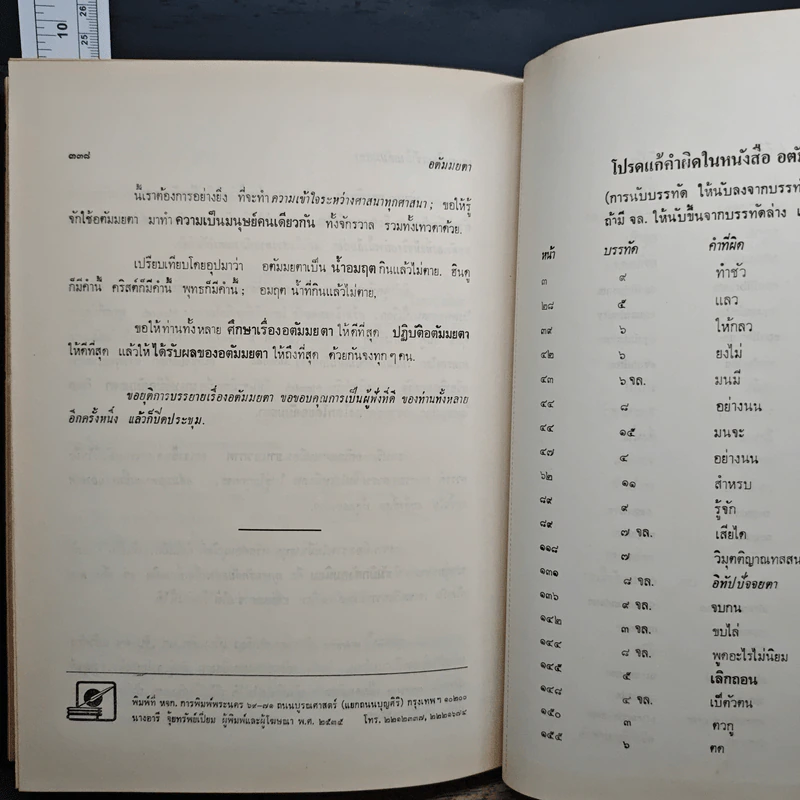 10
25
26
๓๓๘
อตัมมยตา
นี้เราต้องการอย่างยิ่ง ที่จะทำ ความเข้าใจระหว่างศาสนาทุกศาสนา; ขอให้รู้
จักใช้อตัมมยตา มาทำ ความเป็นมนุษย์คนเดียวกัน ทั้งจักรวาล รวมทั้งเทวดาด้วย.
เปรียบเทียบโดยอุปมาว่า อตัมมยตาเป็น น้ำอมฤต กินแล้วไม่ตาย. ฮินดู
ก็มีคำนี้ คริสต์ก็มีคำนี้ พุทธก็มีคำนี้; อมฤต น้ำที่กินแล้วไม่ตาย.
ขอให้ท่านทั้งหลาย ศึกษาเรื่องอตัมมยตา ให้ดีที่สุด ปฏิบัติอตัมมยตา
ให้ดีที่สุด แล้วให้ ได้รับผลของอตัมมยตา ให้ถึงที่สุด ด้วยกันจงทุก ๆ คน.
ขอยุติการบรรยายเรื่องอตัมมยตา ขอขอบคุณการเป็นผู้ฟังที่ดี ของท่านทั้งหลาย
อีกครั้งหนึ่ง แล้วก็ปิดประชุม.
พิมพ์ที่ หจก. การพิมพ์พระนคร ๖๙-๗๑ ถนนบูรณศาสตร์ (แยกถนนบุญศิริ) กรุงเทพฯ ๑๐๒๐๐
นางอารี จุ้ยทรัพย์เปี่ยม ผู้พิมพ์และผู้โฆษณา พ.ศ. ๒๕๓๕ โทร. ๒๒๑๒๓๓๗, ๒๒๒๑๖๗๔
โปรดแก้คำผิดในหนังสือ
(การนับบรรทัด ให้นับลงจากบรรทั
ถ้ามี จล. ให้นับขึ้นจากบรรทัดล่าง
หน้า บรรทัด คำที่ผิด
๓ ๙ ทำชัว
๒๘ ๕ แลว
๓๙ ๖ ให้กลว
๔๒ ๖ ยงไม่
๔๓ ๖ จล. มนมี
๔๔ ๘ อย่างนน
๔๔ ๑๕ มนจะ
๔๗ ๔ อย่างนน
๖๒ ๑๑ สำหรบ
๘๙ ๙ รู้จัก
๘๙ ๗ จล. เสียได
๑๑๘ ๗ วิมุตติญาณทสสน
๑๓๑ ๘ จล. อิทัปปัจจยตา
๑๓๖ ๙ จล. จบกน
๑๔๒ ๓ จล. ขบไล่
๑๔๔ ๘ จล. พูดอะไรไม่นิยม
๑๔๕ ๕ เลิกถอน
๑๔๘ ๔ จล. เป็ตัวตน
๑๕๐ ๓ ตวกู
๑๕๕ ๖ ตด